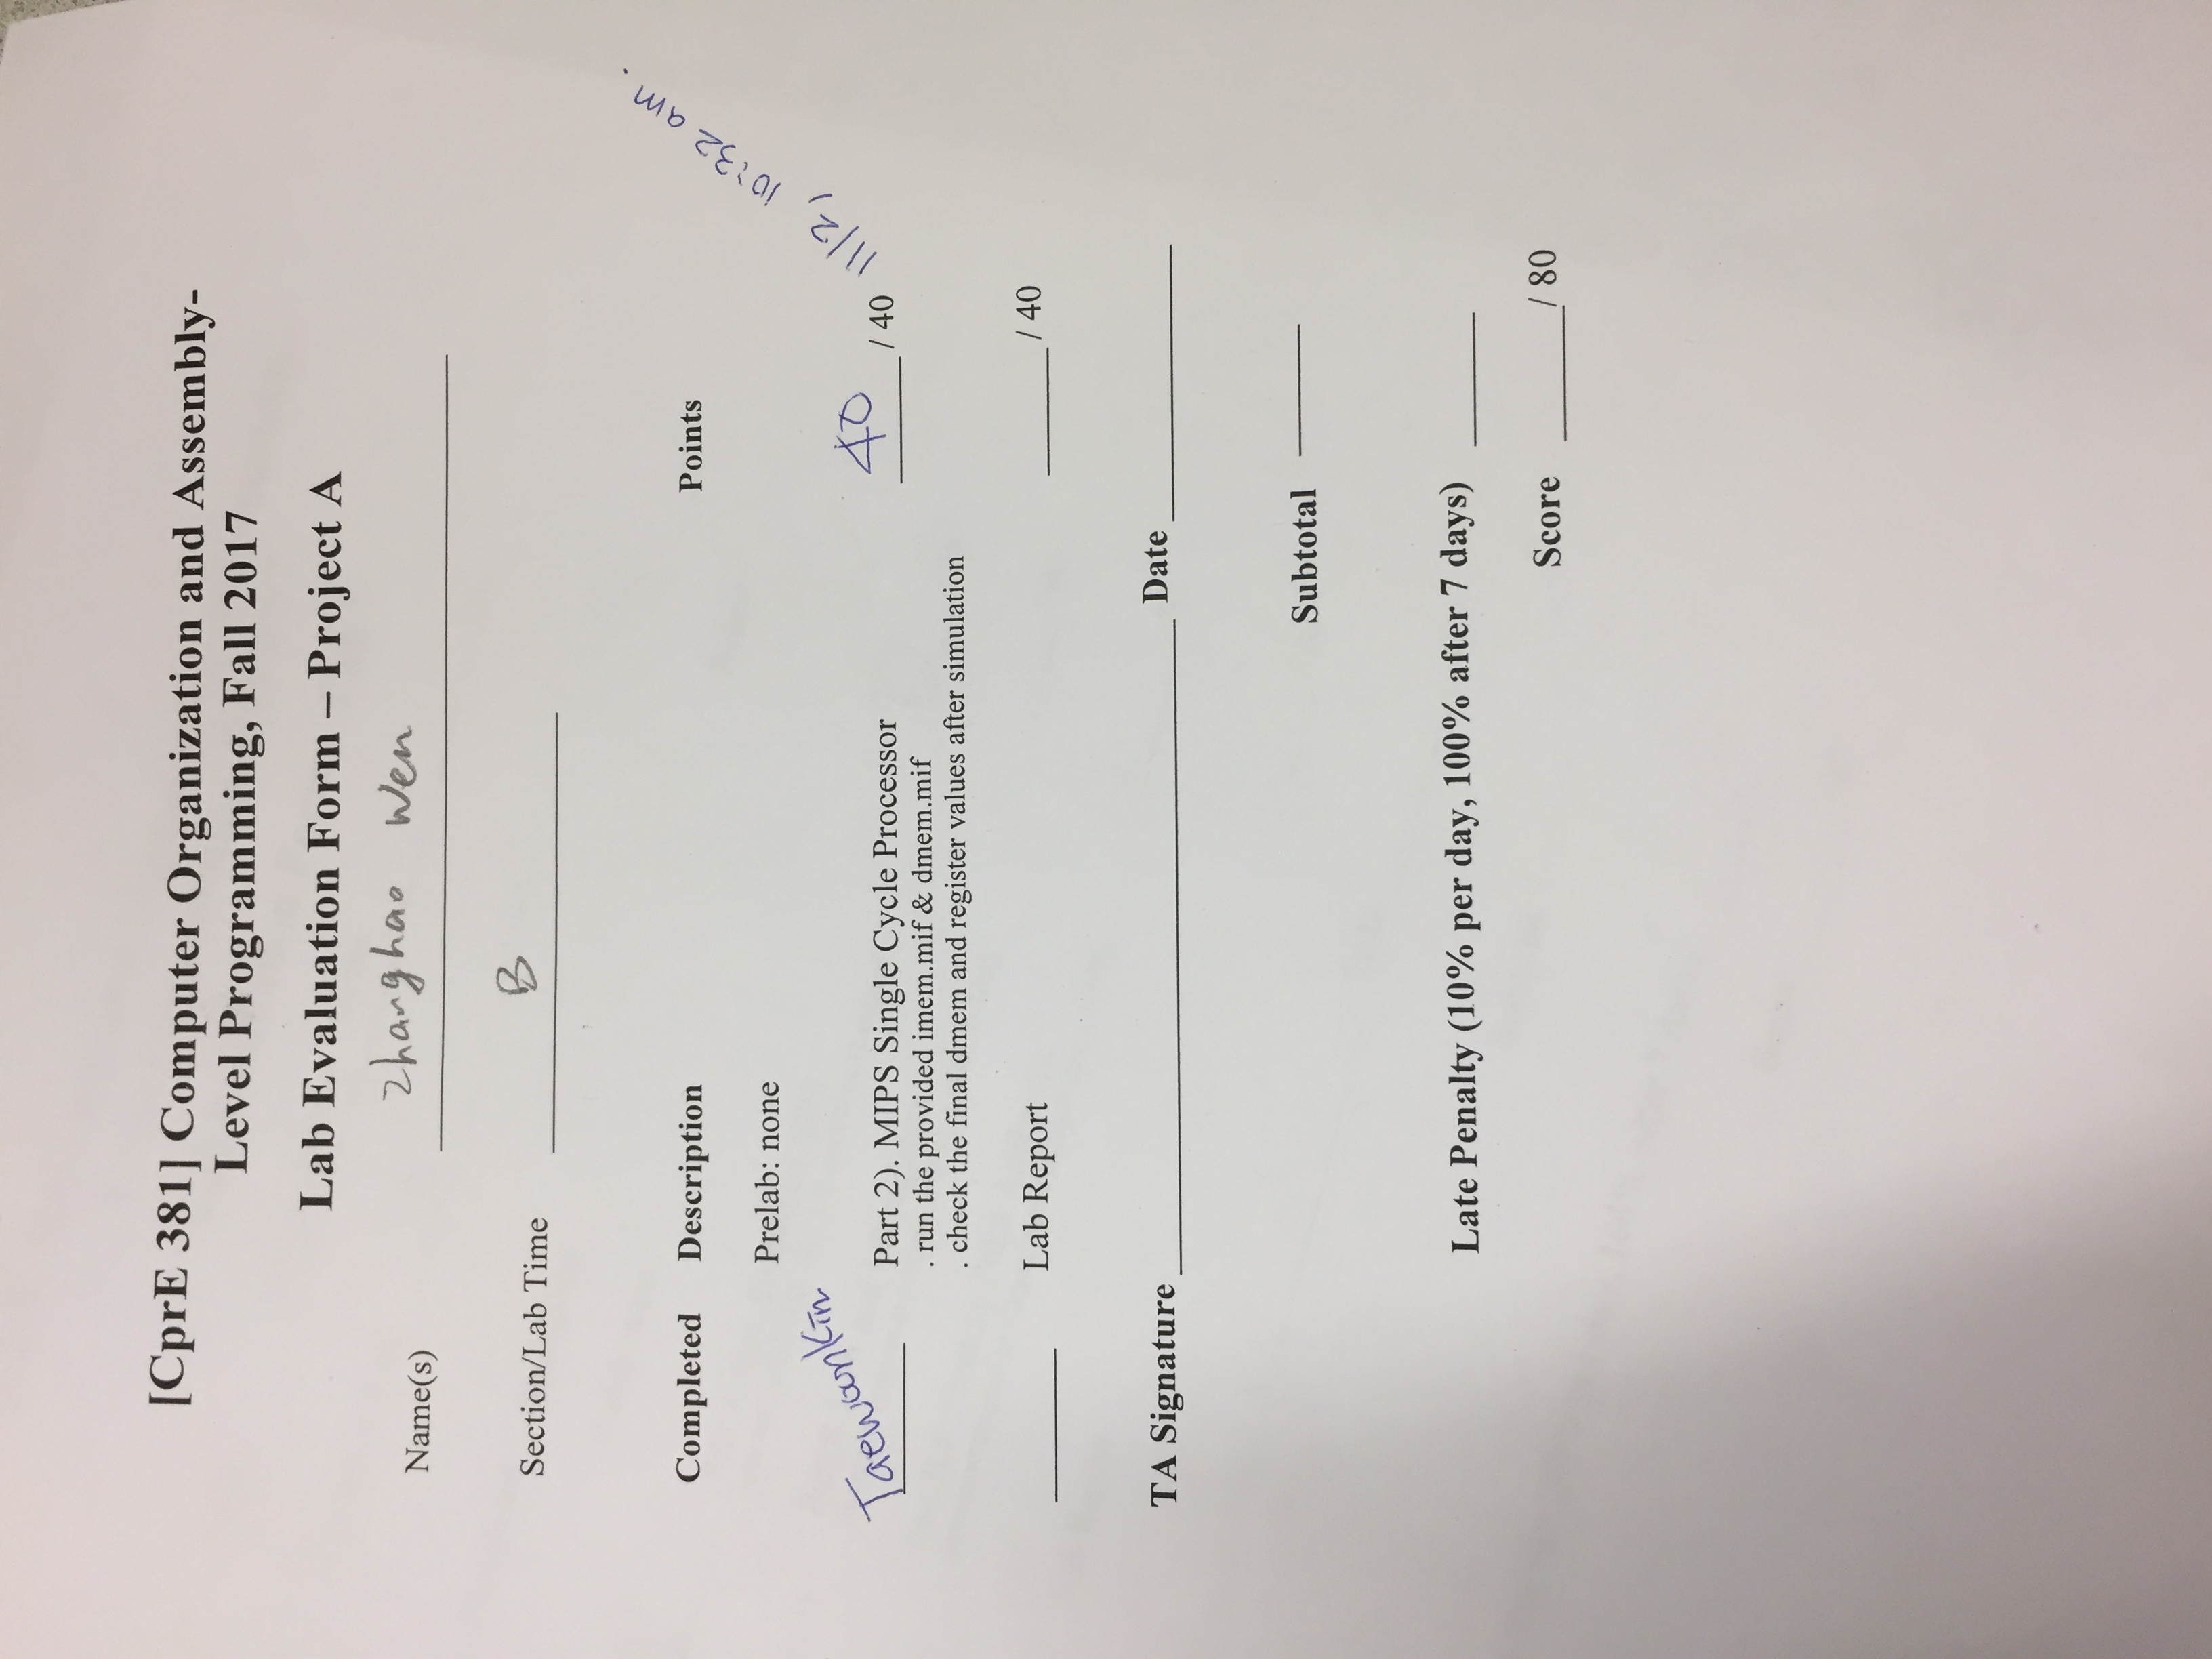 [CprE 381] Computer Organization and Assembly-
Level Programming, Fall 2017
Lab Evaluation Form – Project A
Name(s) Zhanghao Wen
Section/Lab Time B
Completed Description Points
Prelab: none
Taewoonkim Part 2). MIPS Single Cycle Processor 40 / 40 11/2, 10:32 am.
. run the provided imem.mif & dmem.mif
. check the final dmem and register values after simulation
Lab Report / 40
TA Signature Date
Subtotal
Late Penalty (10% per day, 100% after 7 days)
Score / 80